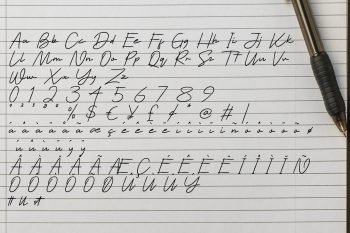 Aa Bb Cc Dd Ee Ff Gg Hh Ii Jj Kk
Ll Mm Nn Oo Pp Qq Rr Ss Tt Uu Vv
Ww Xx Yy Zz
0 1 2 3 4 5 6 7 8 9
% $ € ¥ £ ¢ @ # |
à á â ã ä å æ ç è é ê ë ì í î ï ñ ò ó ô õ ö ø
ù ú û ü ý ÿ
À Á Â Ã Ä Å Æ Ç È É Ê Ë Ì Í Î Ï Ñ
Ò Ó Ô Õ Ö Ø Ù Ú Û Ü Ý